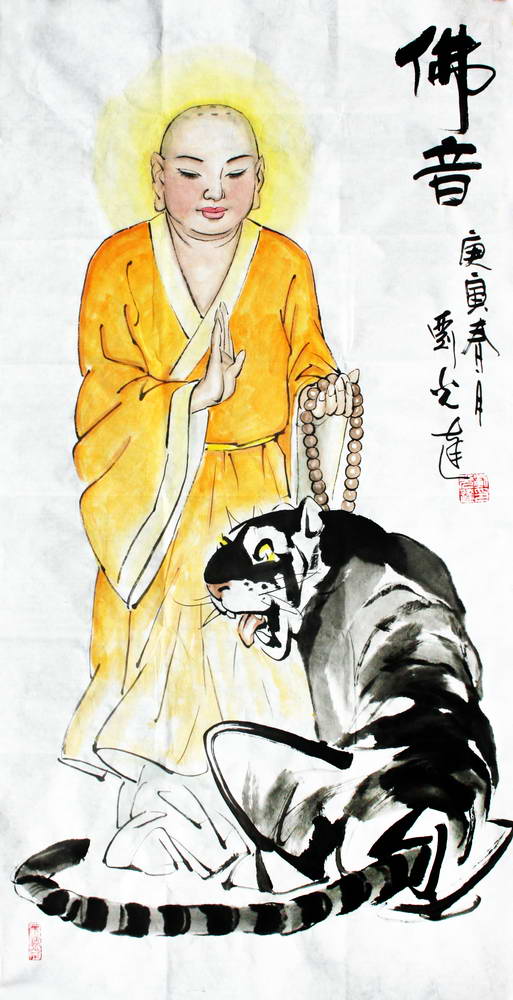 佛音
庚寅春月
劉光達